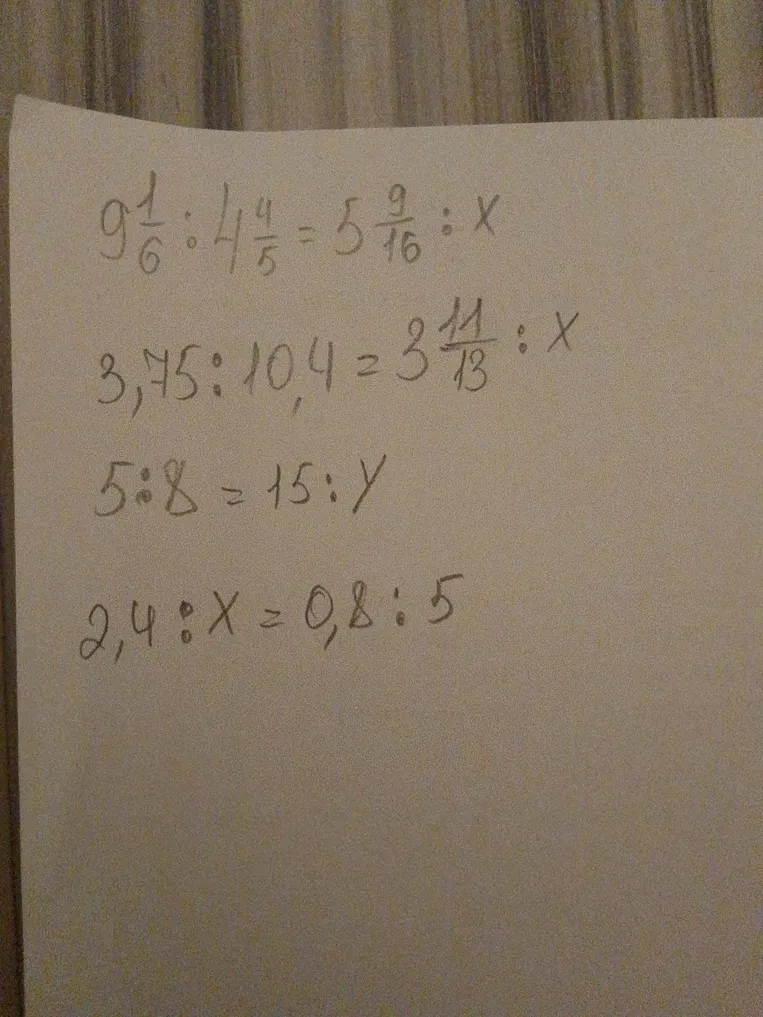 9 1/6 : 4 4/5 = 5 9/16 : x
3,75 : 10,4 = 3 11/13 : x
5 : 8 = 15 : y
2,4 : x = 0,8 : 5